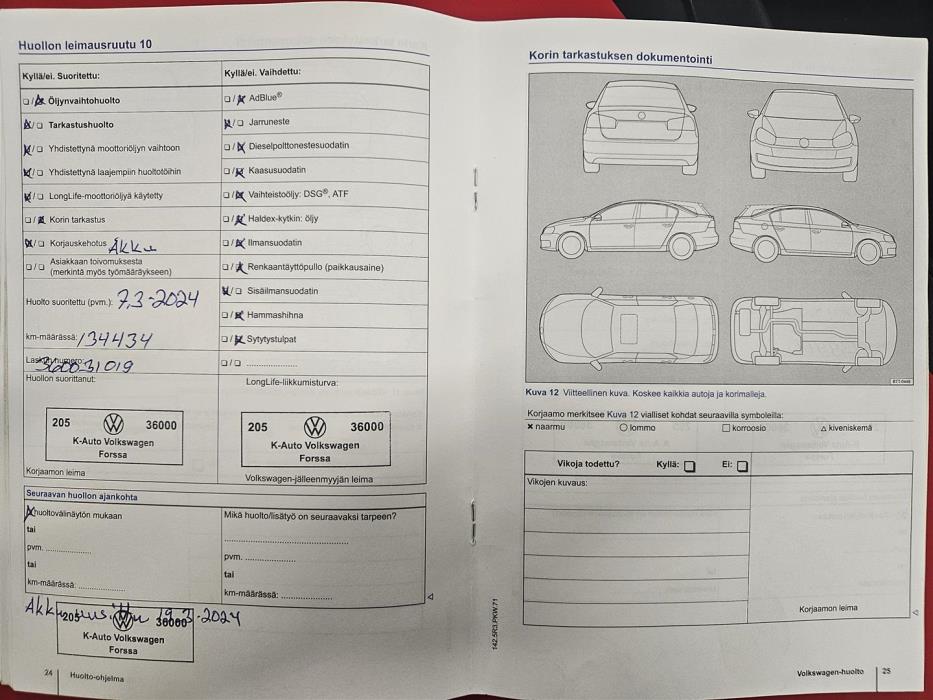 Huollon leimausruutu 10
Kyllä/ei. Suoritettu:
☐/☒ Öljynvaihtohuolto
☒/☐ Tarkastushuolto
☒/☐ Yhdistettynä moottoriöljyn vaihtoon
☒/☐ Yhdistettynä laajempiin huoltotöihin
☒/☐ LongLife-moottoriöljyä käytetty
☐/☒ Korin tarkastus
☒/☐ Korjauskehotus Akku
☐/☐ Asiakkaan toivomuksesta
(merkintä myös työmääräykseen)
Huolto suoritettu (pvm.): 7.3-2024
km-määrässä: 134434
Laskun numero: 3600031019
Huollon suorittanut:
205 36000
K-Auto Volkswagen
Forssa
Korjaamon leima
Kyllä/ei. Vaihdettu:
☐/☒ AdBlue®
☒/☐ Jarruneste
☐/☒ Dieselpolttonestesuodatin
☐/☒ Kaasusuodatin
☐/☒ Vaihteistoöljy: DSG®, ATF
☐/☒ Haldex-kytkin: öljy
☐/☒ Ilmansuodatin
☐/☒ Renkaantäyttöpullo (paikkausaine)
☒/☐ Sisäilmansuodatin
☐/☒ Hammashihna
☐/☒ Sytytystulpat
☐/☐ ....................
LongLife-liikkumisturva:
205 36000
K-Auto Volkswagen
Forssa
Volkswagen-jälleenmyyjän leima
Seuraavan huollon ajankohta
☒ huoltovälinäytön mukaan
tai
pvm. ................
tai
km-määrässä: ................
Mikä huolto/lisätyö on seuraavaksi tarpeen?
........................................
pvm. ..................
tai
km-määrässä: ..................
Akku 19.3-2024
205 36000
K-Auto Volkswagen
Forssa
24 Huolto-ohjelma
142.5R3.PKW.71
Korin tarkastuksen dokumentointi
Kuva 12 Viitteellinen kuva. Koskee kaikkia autoja ja korimalleja.
Korjaamo merkitsee Kuva 12 vialliset kohdat seuraavilla symboleilla:
× naarmu ○ lommo □ korroosio △ kiveniskemä
Vikoja todettu? Kyllä: ☐ Ei: ☐
Vikojen kuvaus:
Korjaamon leima
Volkswagen-huolto 25